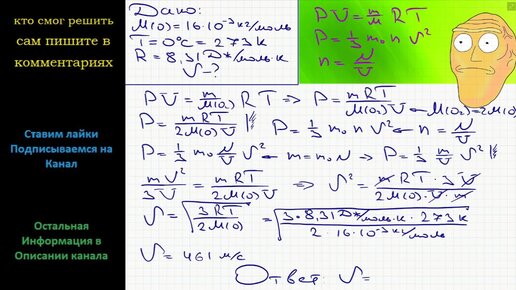 кто смог решить
сам пишите в
комментариях
Ставим лайки
Подписываемся на
Канал
Остальная
Информация в
Описании канала
Дано:
M(O) = 16·10⁻³ кг/моль
T = 0°C = 273 K
R = 8,31 Дж/моль·K
V - ?
PV = m/M RT
P = 1/3 m₀ n V²
n = N/V
PV = m/M(O₂) RT => P = mRT/M(O₂)V ← M(O₂) = 2M(O)
P = mRT/2M(O)V P = 1/3 m₀ n V² ← n = N/V
P = 1/3 m₀ N/V V² ← m = m₀N => P = 1/3 m/V V²
mV²/3V = mRT/2M(O)V => V² = mRT·3V/2M(O)·V·m
V = √3RT/2M(O) = √3·8,31 Дж/моль·K·273K/2·16·10⁻³ кг/моль
V = 461 м/с
Ответ: V =